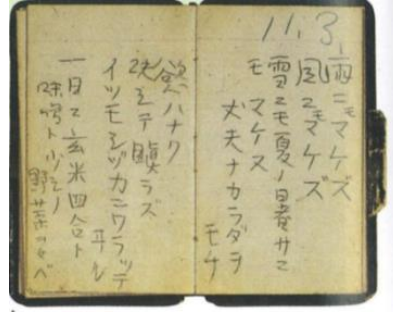 11.3,
雨ニモマケズ
風ニモマケズ
雪ニモ夏ノ暑サニ
モマケヌ
丈夫ナカラダヲ
モチ
慾ハナク
決シテ瞋ラズ
イツモシヅカニワラッテ
ヰル
一日ニ玄米四合ト
味噌ト少シノ
野菜ヲタベ